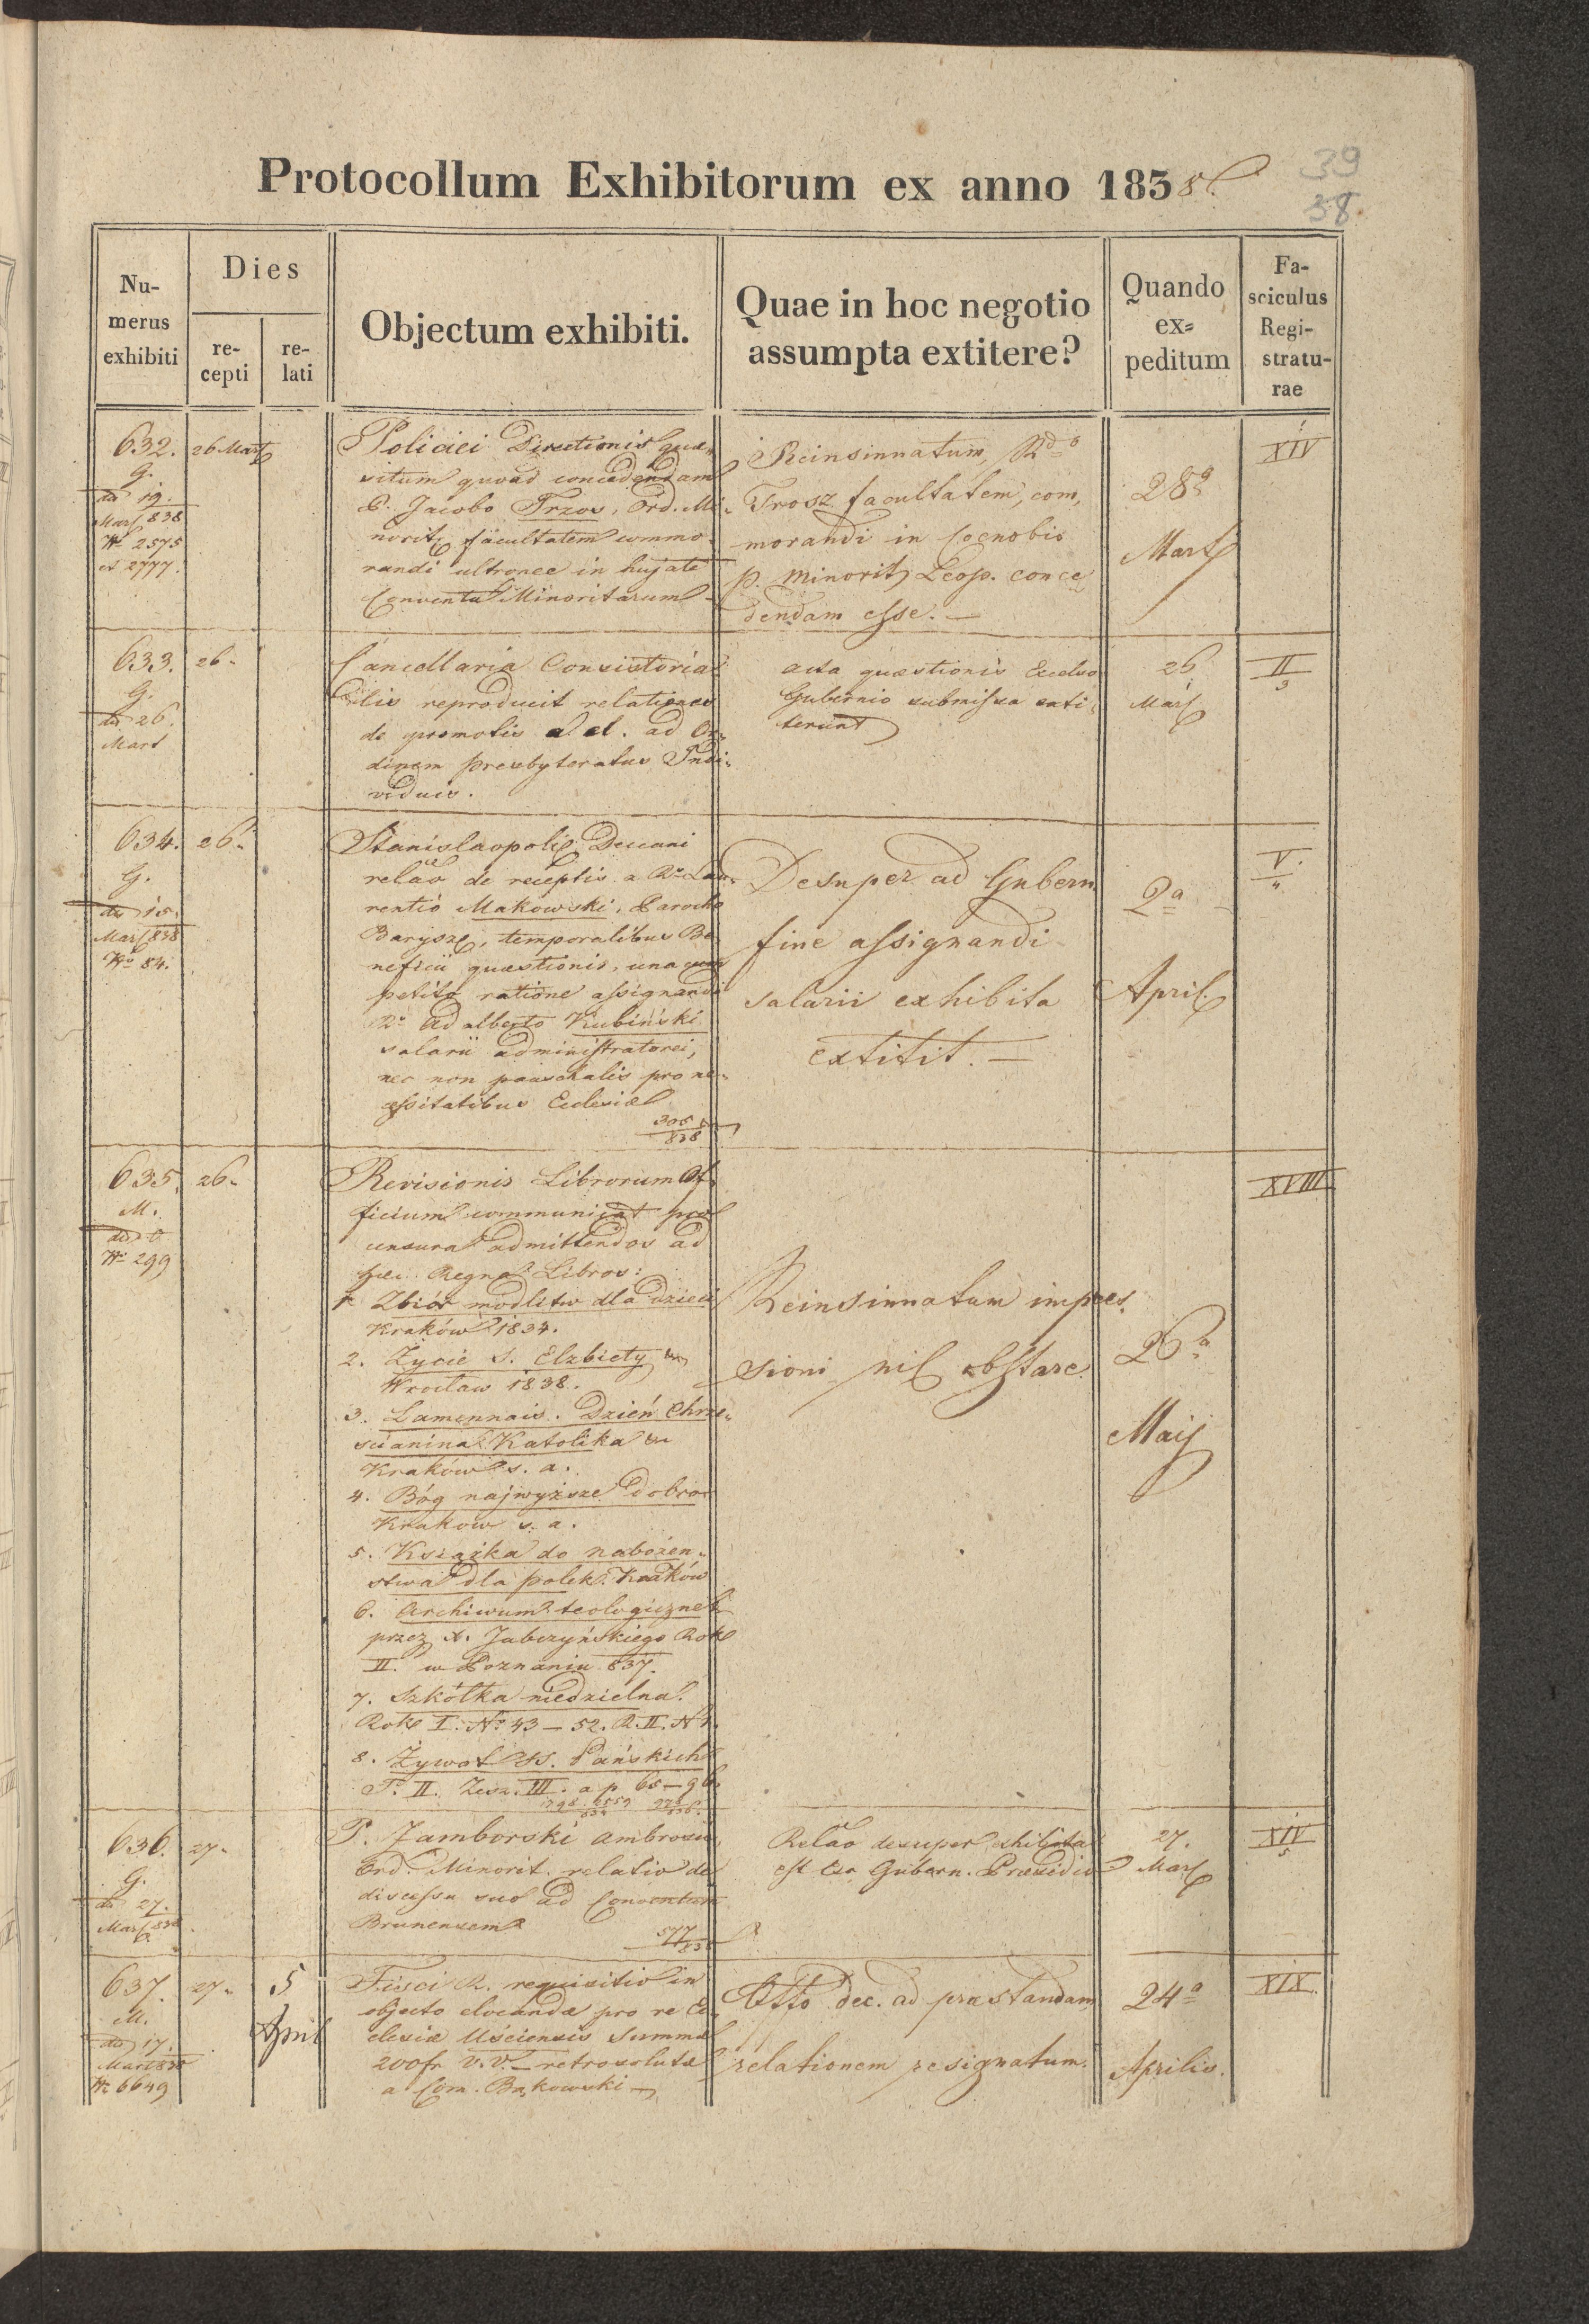 39
38.
Protocollum Exhibitorum ex anno 1838.
Nu-
merus
exhibiti
Dies
re-
cepti
re-
lati
Objectum exhibiti.
Quae in hoc negotio
assumpta extitere?
Quando
ex=
peditum
Fa-
sciculus
Regi-
stratu-
rae
632.
G.
dd 19.
Mart 838
No 2575
et 2777.
26 Mart
Policiei Directionis quae
situm quoad concedendam
P. Jacobo Trzos, Ord. Mi-
norit facultatem commo-
randi ultronee in hujate
Conventu Minoritarum
Reinsinnatum, Rdo
Trosz facultatem, com,
morandi in Coenobio
p. Minorit Leop. conce
dendam esse. —
28a
Mart
XIV
633.
G.
dd 26.
Mart
26.
Cancellaria Consistoria
lis reproducit relationes
de promotis ad Or-
dinem presbyteratus Indi-
viduis.
acta quaestionis Excelso
Gubernio submissa exti
terunt
26
Mart
II
3
634.
G.
dd 15.
Mart 838
No 84.
26.
Stanislaopoli Decani
relao de receptis a Ro Lau-
rentio Makowski, Parocho
Barysz, temporalibus Be-
neficii quaestionis, una cum
petito ratione assignandi
Ro Adalberto Kubiński
salarii administratorei,
nec non pauschalis pro ne-
cessitatibus Ecclesiae
305
838
Desuper ad Gubern
fine assignandi
salarii exhibita
extitit. —
2a
April
V.
635.
M.
No 299
26.
Revisionis Librorum Of-
ficium communicat pro
censura admittendos ad
haec Regna Libros:
1 Zbiór modlitw dla dzieci
Kraków 1834.
2. Zycie S. Elzbiety
Wrocław 1838.
3. Lamennais. Dzień Chrze-
scianina Katolika
Kraków s. a.
4. Bóg najwyższe dobro
Krakow s. a.
5. Książka do nabożen-
stwa dla polek. Kraków
6. Archiwum teologiczne
przez X. Jabczyńskiego Rok
II. w Poznaniu 837.
7. Szkółka niedzielna.
Rok I. No 43 — 52. R. II. N 1.
8. Żywot SS. Pańskich
T. II. Zesz. III. a p 65 — 96.
Reinsinnatum impres.
sioni nil obstare.
26a
Maij
XVIII
636.
G.
dd 27.
Mart 838
27.
P. Jamborski Ambrosii
Ord. Minorit. relatio de
discessu suo ad Conventum
Brunensem
577
838
Relao desuper exhibita
est Gubern. Praesidio
27.
Mart
XIV
5
637.
M.
dd 17.
Mart 838
No 6649
27.
5
April
Fisci R. requisitio in
objecto elocandae pro re Ec-
clesiae Uściensis Summae
200fr V.V. retrosolutae
a Com. Bąkowski
Offo dec. ad praestandam
relationem resignatum.
24a
Aprilis.
XIX